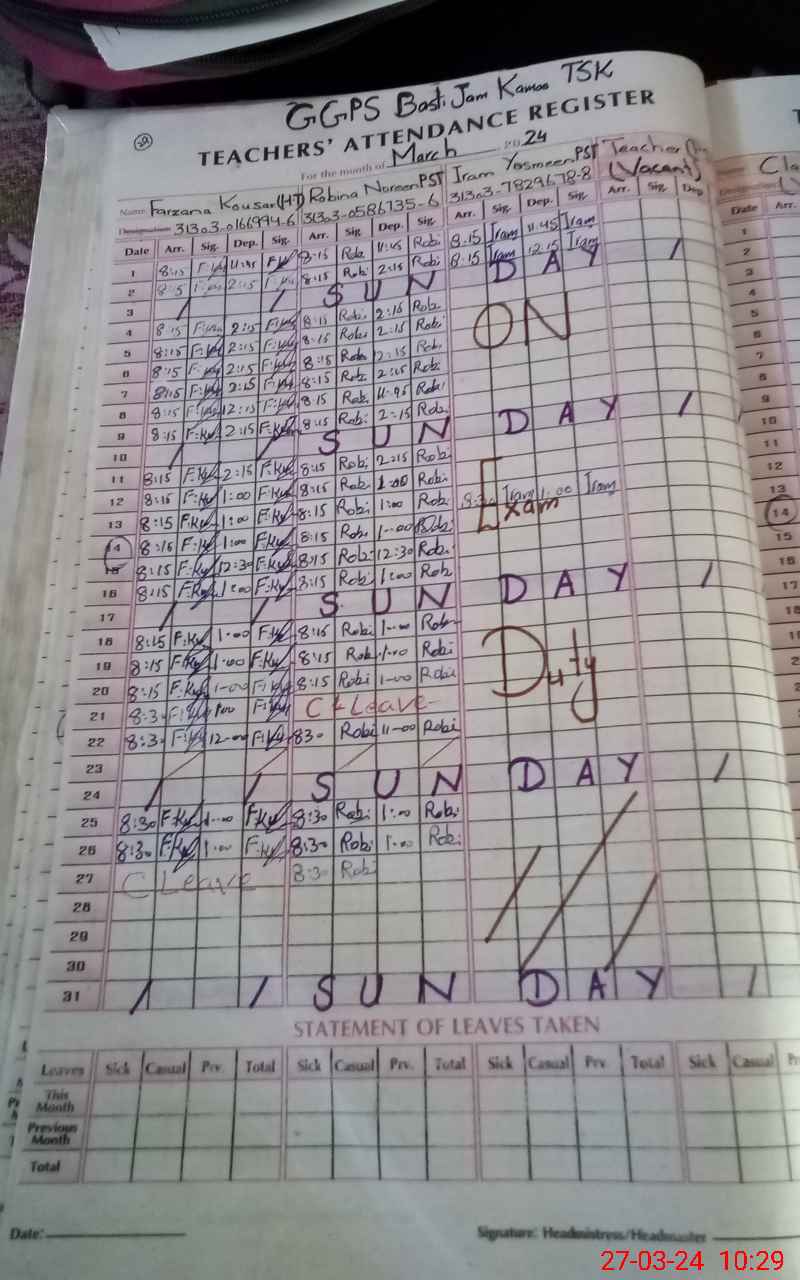 GGPS Basti Jam Kamoo TSK
TEACHERS' ATTENDANCE REGISTER
For the month of March 2024
Name Farzana Kousar (HT) Robina Noreen PST Iram Yasmeen PST Teacher (Vacant)
Designation 31303-0166994-6 31303-0586735-6 31303-7829678-8
Date Arr. Sig. Dep. Sig. Arr. Sig. Dep. Sig. Arr. Sig. Dep. Sig. Arr. Sig. Dep
1 8:15 11:45 8:15 Rob 11:45 Robi 8:15 Iram 11:45 Iram
2 2:15 8:15 Rob 2:15 Robi 8:15 Iram 12:15 Iram
3 / / S U N D A Y /
4 8:15 2:15 8:15 Robi 2:15 Rob ON
5 8:15 F:Ky 2:15 F:Ky 8:15 Robi 2:15 Robi
6 8:15 F:Ky 2:15 F:Ky 8:15 Rob 2:15 Rob
7 8:15 F:Ky 2:15 F:Ky 8:15 Rob 2:15 Rob
8 8:15 F:Ky 12:15 F:Ky 8:15 Rob 11:45 Rob
9 8:15 F:Ky 2:15 F:Ky 8:15 Robi 2:15 Rob
10 / / S U N D A Y /
11 8:15 F:Ky 2:15 F:Ky 8:15 Robi 2:15 Rob
12 8:15 F:Ky 1:00 F:Ky 8:15 Rob 1:00 Robi
13 8:15 F:Ky 1:00 F:Ky 8:15 Robi 1:00 Rob Iram 1:00 Iram
Exam
14 8:15 F:Ky 1:00 F:Ky 8:15 Rob 1:00 Rob
15 8:15 F:Ky 12:30 F:Ky 8:15 Rob 12:30 Rob
16 8:15 F:Ky 1:00 F:Ky 8:15 Robi 1:00 Rob
17 / / S U N D A Y /
18 8:15 F:Ky 1:00 F:Ky 8:15 Robi 1:00 Rob
19 8:15 F:Ky 1:00 F:Ky 8:15 Rob 1:00 Robi Duty
20 8:15 F:Ky 1:00 F:Ky 8:15 Robi 1:00 Robi
21 8:30 F:Ky 1:00 F:Ky C Leave
22 8:30 F:Ky 12:00 F:Ky 830 Robi 11:00 Robi
23
24 / / S U N D A Y /
25 8:30 F:Ky 1:00 F:Ky 8:30 Rob 1:00 Rob
26 8:30 F:Ky 1:00 F:Ky 8:30 Rob 1:00 Rob
27 C Leave 8:30 Rob
28
29
30
31 / / S U N D A Y /
STATEMENT OF LEAVES TAKEN
Leaves Sick Casual Prv. Total Sick Casual Prv. Total Sick Casual Prv. Total Sick Casual
This Month
Previous Month
Total
Date: Signature: Headmistress/Headmaster
27-03-24 10:29